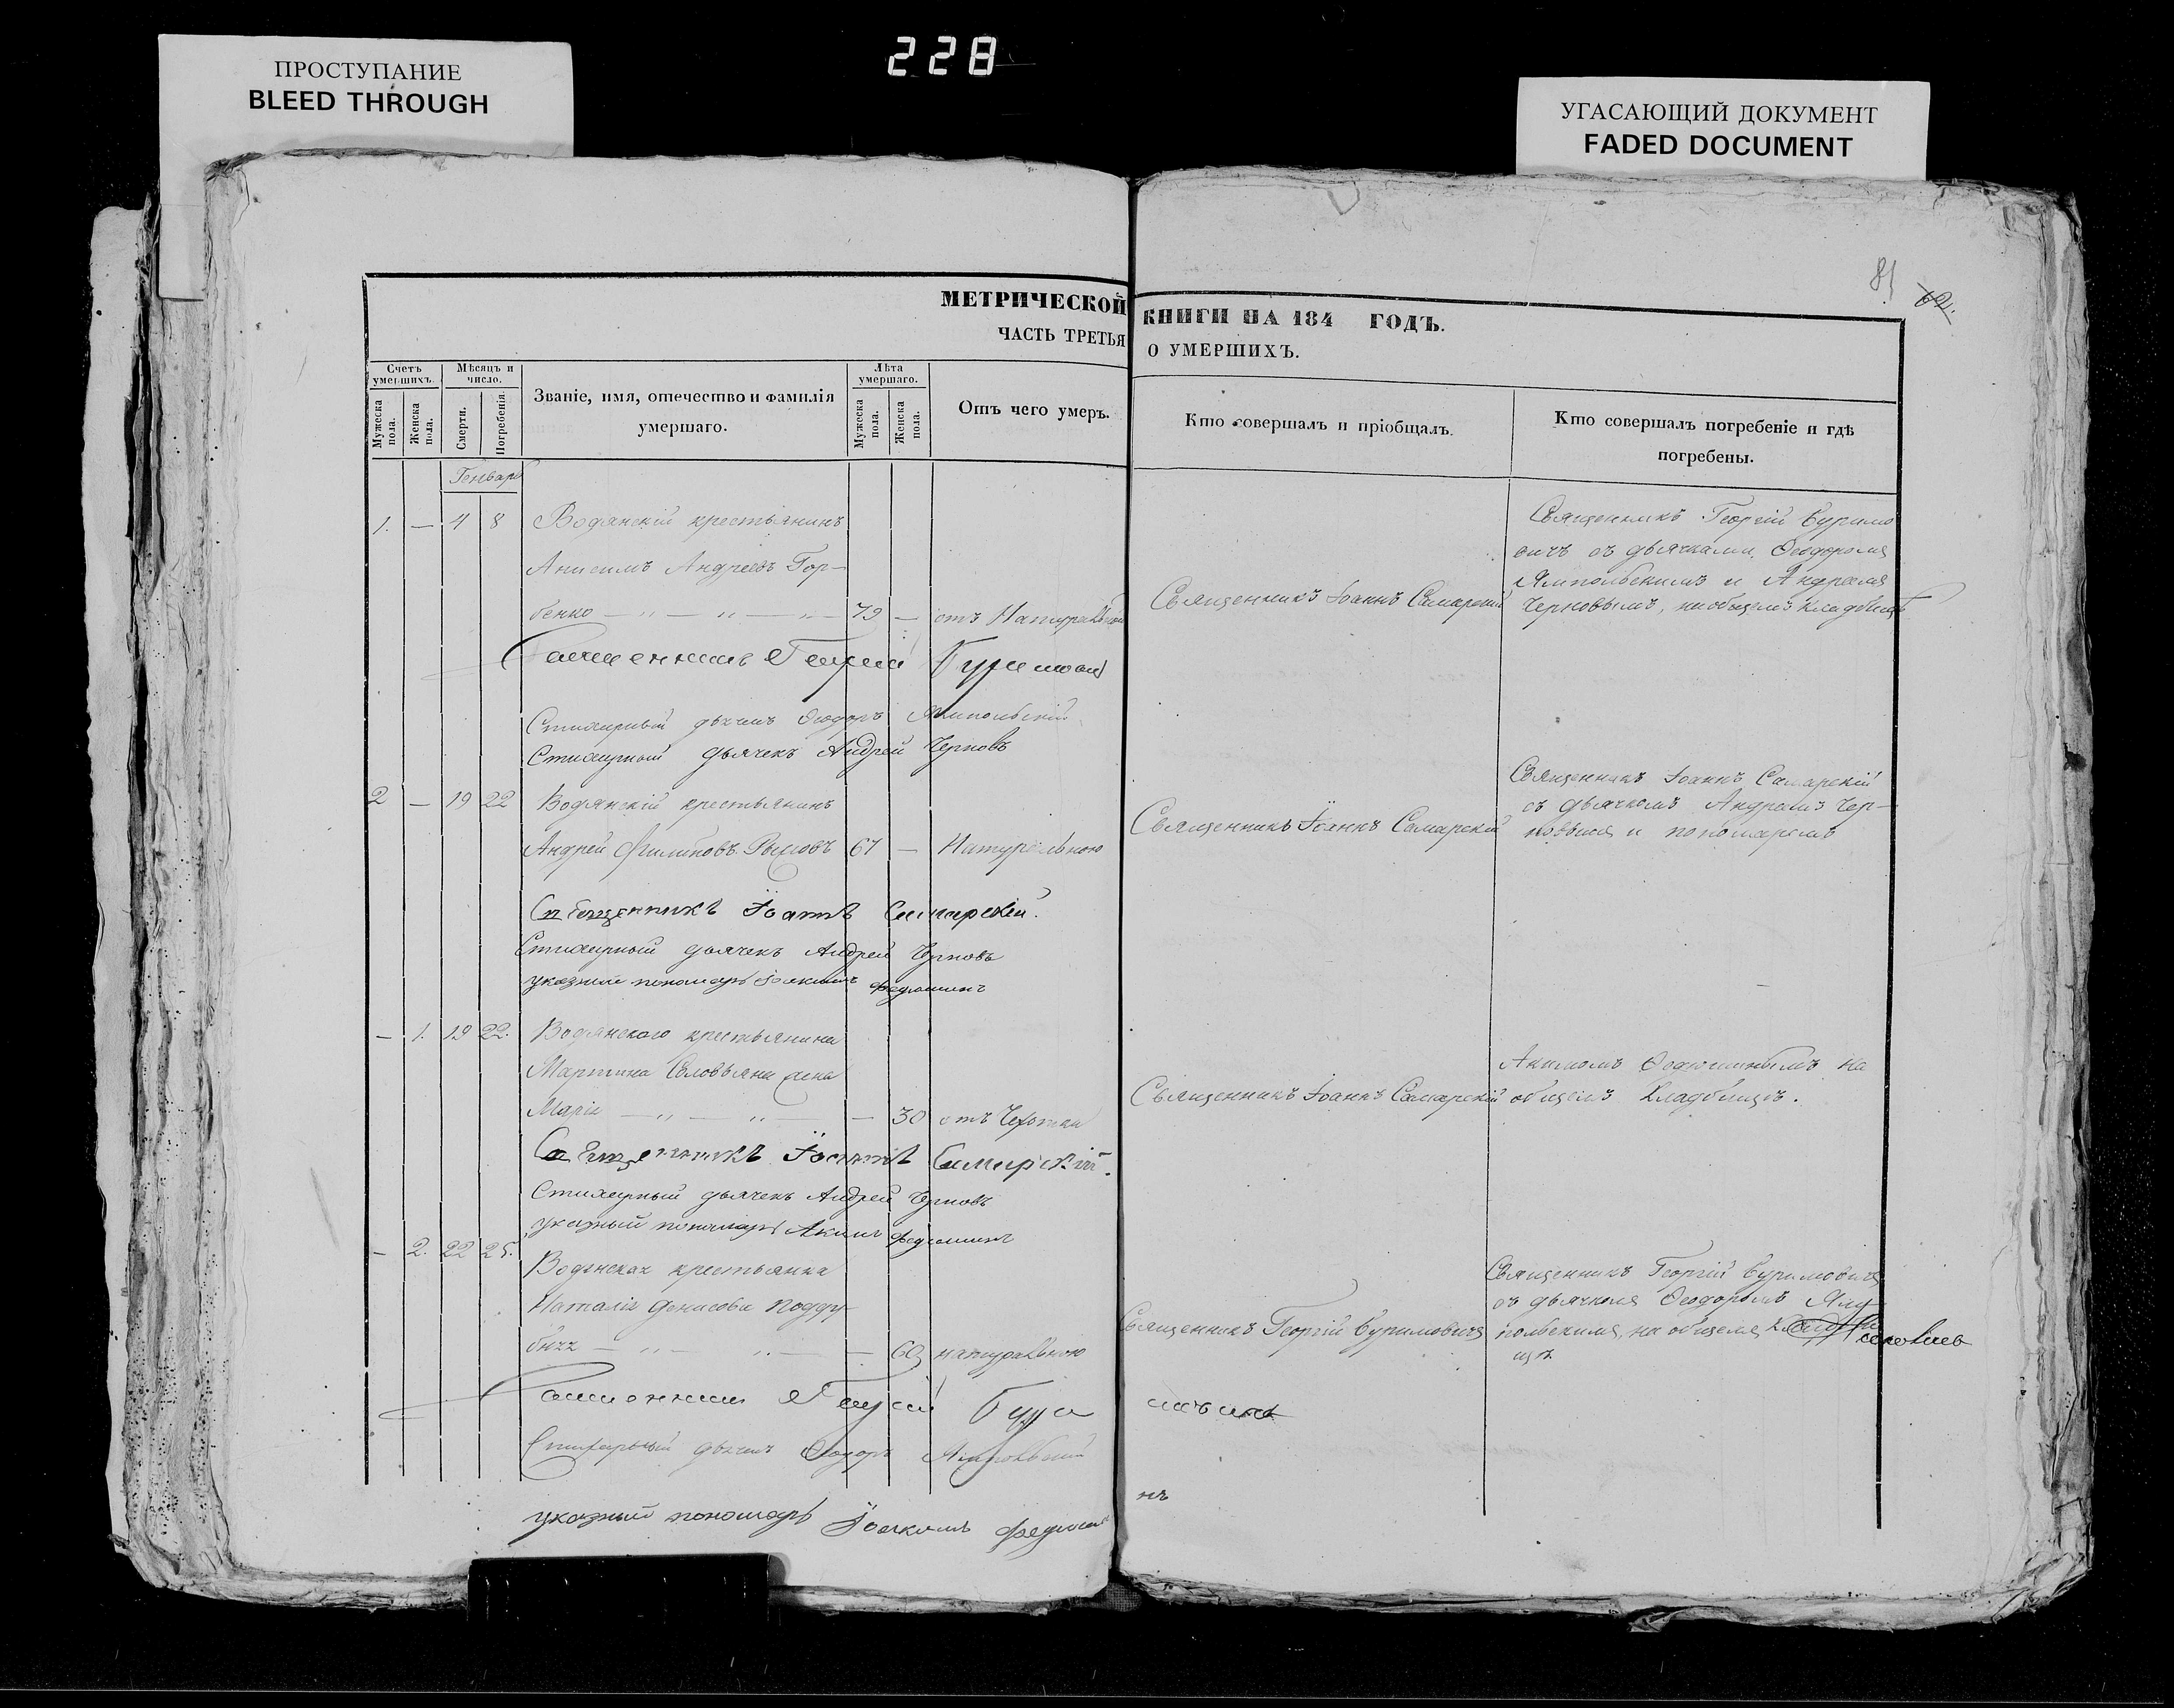 228
ПРОСТУПАНИЕ
BLEED THROUGH
УГАСАЮЩИЙ ДОКУМЕНТ
FADED DOCUMENT
81
62.
МЕТРИЧЕСКОЙ КНИГИ НА 184 ГОДЪ.
ЧАСТЬ ТРЕТЬЯ О УМЕРШИХЪ.
Счетъ умершихъ.
Мужеска пола.
Женска пола.
Мѣсяцъ и число.
Смерти.
Погребенія.
Званіе, имя, отечество и фамилія умершаго.
Лѣта умершаго.
Мужеска пола.
Женска пола.
Отъ чего умеръ.
Кто совершалъ и пріобщалъ.
Кто совершалъ погребеніе и гдѣ погребены.
Генварь
1. — 4 8 Водянскій крестьянинъ
Анисимъ Андреевъ Гор-
бенко — „ — „ — „ — 79 — отъ Натуральной
Священникъ Іоаннъ Самарскій
Священникъ Георгій Буримо
вичъ съ дьячками, Ѳеодоромъ
Ямпольскимъ и Андреемъ
Черновымъ, на общемъ кладбищѣ
Священникъ Георгій Буримович
Стихарный дьячекъ Ѳеодоръ Ямпольскій
Стихарный дьячекъ Андрей Черновъ
2 — 19 22 Водянскій крестьянинъ
Андрей Филиповъ 67 — Натуральною
Священникъ Іоаннъ Самарскій
Священникъ Іоаннъ Самарскій
съ дьячкомъ Андреемъ Чер-
новымъ и пономаремъ
Священникъ Іоаннъ Самарскій.
Стихарный дьячекъ Андрей Черновъ
указный пономарь Іоакимъ Федюшинъ
— 1. 19 22. Водянскаго крестьянина
Мартина жена
Марія — „ — „ — — 30 отъ
Священникъ Іоаннъ Самарскій
Акимомъ Ѳедюшинымъ на
общемъ кладбищѣ.
Священникъ Іоаннъ Самарскій.
Стихарный дьячекъ Андрей Черновъ
указный пономарь Акимъ Федюшинъ
— 2. 22 25. Водянская крестьянка
Наталія Денисова Подду-
— „ — „ — — 60 натуральною
Священникъ Георгій Буримовичъ
Священникъ Георгій Буримовичъ
съ дьячкомъ Ѳеодоромъ Ям-
польскимъ, на общемъ
щѣ
Священникъ Георгій Бури мовичъ
Стихарный дьячекъ Ѳеодоръ Ямпольскій
указный пономарь Іоакимъ Федюши
нъ